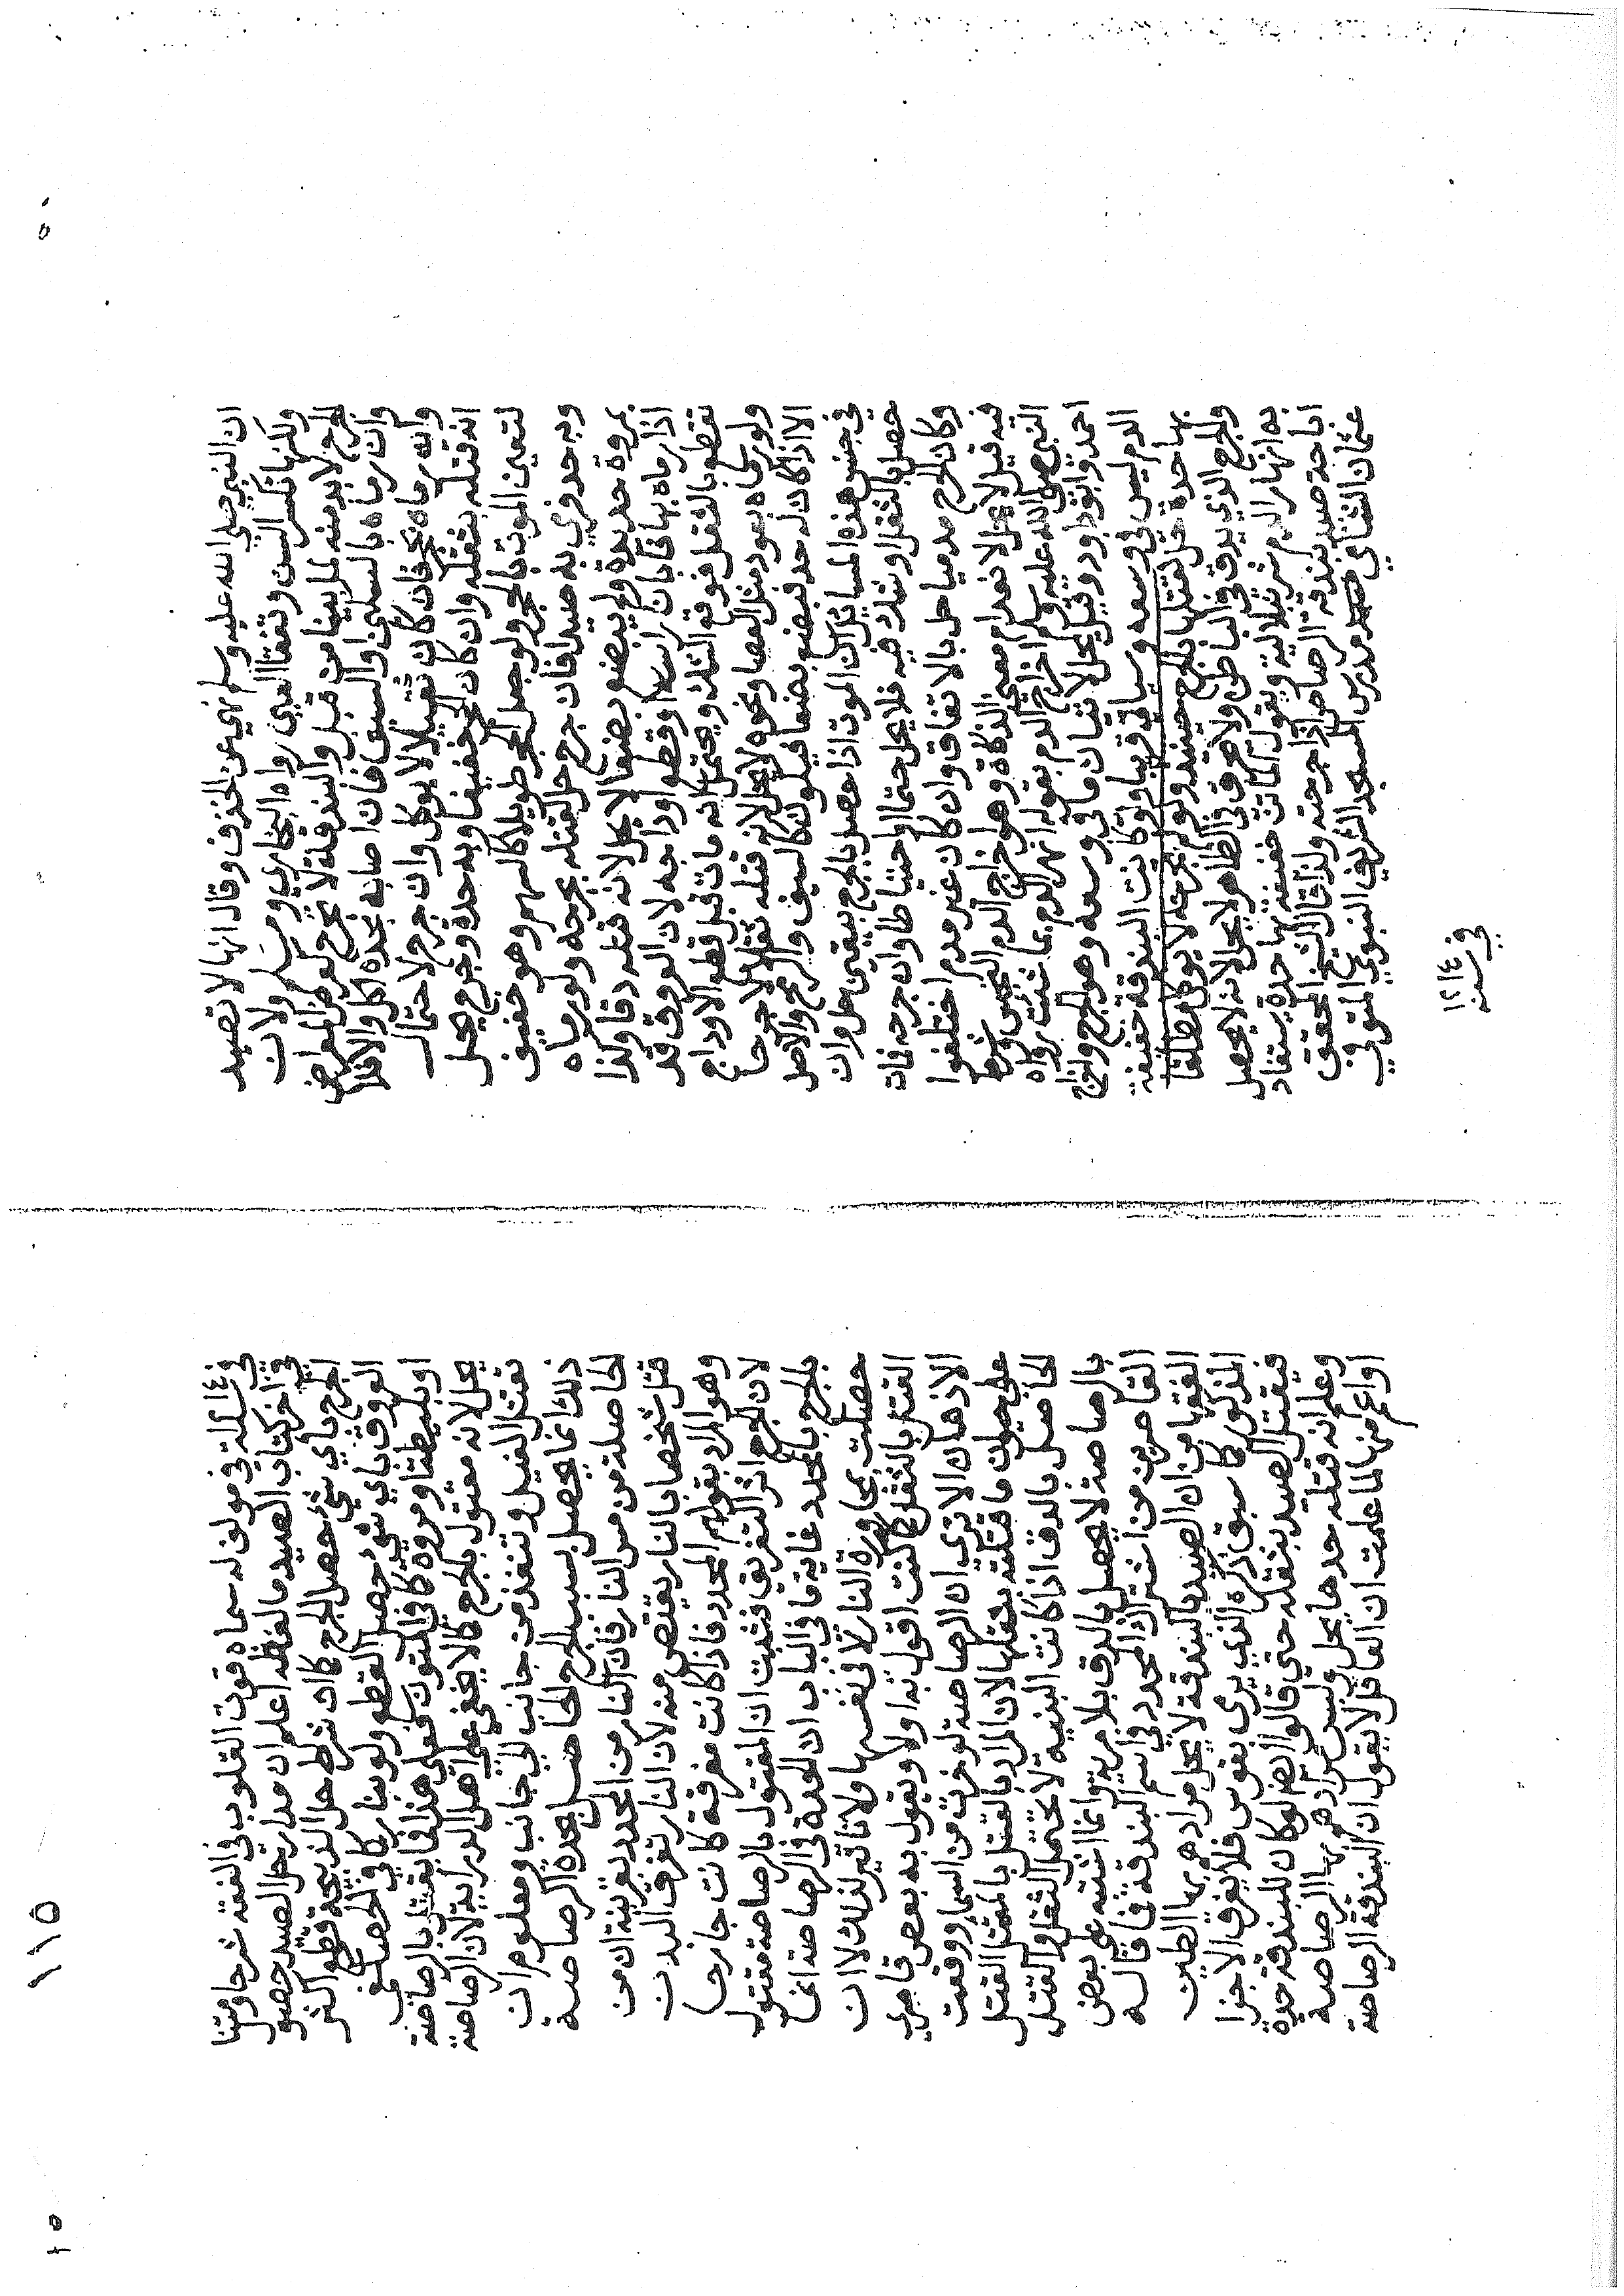 ان النبي صلي الله عليه وسلم نهي عن الخذف وقال انها لا تصيد
ولكنها تكسر السن وتفقا العين رواه البخاري ومسلم ولان
الجرح لابد منه لما بينا من قبل والبندقة لا تجرح كعرض المعراض
وان رماه بالسكين او السيف فان اصابه بحده اكل والا فلا
وان رماه بحجر فان كان ثقيلا لا يوكل وان جرح لاحتمال
انه قتله بثقله وان كان الحجر خفيفا وبه حدة وجرح يحل
لتعين الموت بالجرح ولو جعل الحجر طويلا كالسهم وهو خفيف
وبه حد فرمي به صيدا فان جرح حل لقتله بجرحه ولو رماه
بمروة حديدة ولم يبضع بضعا لا يحل لانه قتله دقا وكذا
اذا رماه بها فابان راسه او قطع اوداجه لان العروق قد
تقطع بالثقل فوقع الشك ويحتمل انه مات قبل قطع الاوداج
ولو رماه بعود مثل العصا ونحوه لا يحل لانه قتله ثقلا لا جرحا
الا اذا كان له حد فبضع بضعا فيكون كالسيف والرمح والاصل
في جنس هذه المسايل ان الموت اذا حصل بالجرح بيقين حل وان
حصل بالثقل او شك فيه فلا يحل حتما او احتياطا وان جرحه فمات
وكان الجرح مدميا حل بالاتفاق وان كان غير مدم اختلفوا
فيه قيل لا يحل لانعدام معني الذكاة وهو اخراج الدم النجس وشرط
النبي صلي الله عليه وسلم اخراج الدم بقوله انهر الدم بما شئت رواه
احمد وابو داود وقيل يحل لاتيان ما في وسعه وهو الجرح واخراج
الدم ليس في وسعه وسياتي قريبا ولو كانت البندقة خفيفة
بها حدة حل لقتلها بالجرح حينئذ ولو لم يجرحه لا يوكل مطلقا
والجرح الذي يدق في الباطن ولا خرق في الظاهر لا يحل لانه لا يحصل
به انهار الدم شرنبلالية وبقول اذا كانت خفيفة بها حدة يستفاد
اباحة صيد بندقة الرصاص اذا جرحته ولذا قال الشيخ المحقق
عثمان الشامي مدرس المسجد الشريف النبوي المتوفي
في سنة
١٢١٤
في رسالته في مولف له سماه قوت القلوب في الفقه شرحا ومتنا
في اخر كتاب الصيد ما لفظه اعلم ان مدار حل الصيد حصول
الجرح باي شيء حصل الجرح كما ان شرط حل الذبيحة قطع اكثر
العروق باي شيء حصل القطع ولو بنار كما في
او بليطة او مروة كما في المتون فعلي هذا ما يقتل بالرصاصة
يحل لانه مقتول بالجرح كما لا يخفي علي اهل الدراية لان الرصاصة
تقتل الفيل وتنفذ من جانب الي جانب ومعلوم ان
ذلك انما يحصل بسبب الجرح الحاصل بحدة الرصاصة
الحاصلة من مس النار فان النار من المحدد بقرينة ان من
قتل شخصا بالنار يقتص منه لان النار تفرق البدن
وهو المراد بقولهم المحدد فاذا كانت مفرقة كانت جارحا
لان الجرح اثر التفريق فثبت ان المقتول بالرصاصة مقتول
بالجرح بالمحدد غاية ما في الباب ان الحدة في الرصاصة انما
حصلت بمجاورة النار لا في نفسها ولا تاثير لذلك لا ان
القتل بالثقل كما كنت اقول به اولا ويقول به بعض قاصري
الاذهان الا تري ان الرصاصة لو خرت من السماء ووقعت
علي حيوان ما قتلته بثقلها لان المراد بالقتل بالمثقل القتل
الحاصل بالدق اذا كانت البنية لا تحتمل الثقل والقتل
بالرصاصة لا يحصل بالدق بلا مرية وانما اشتبه علي بعض
القاصرين من اشتراك المحدد في اسم البندقة فما قاله
الفقها من ان الصيد بالبندقة لا يحل مرادهم بها الطين
المذكور كما سبق ذكره الذي يرمي بقوس فلا يفرق الاجزا
فيقتل الصيد بثقله حتي قالوا ايضا لو كان للبندقة حدة
وعلم انه قتله حدها يحل وليس مرادهم بها الرصاصة
او اعم منها لما علمت ان العاقل لا يقول ان البندقة الرصاصة
١١٥